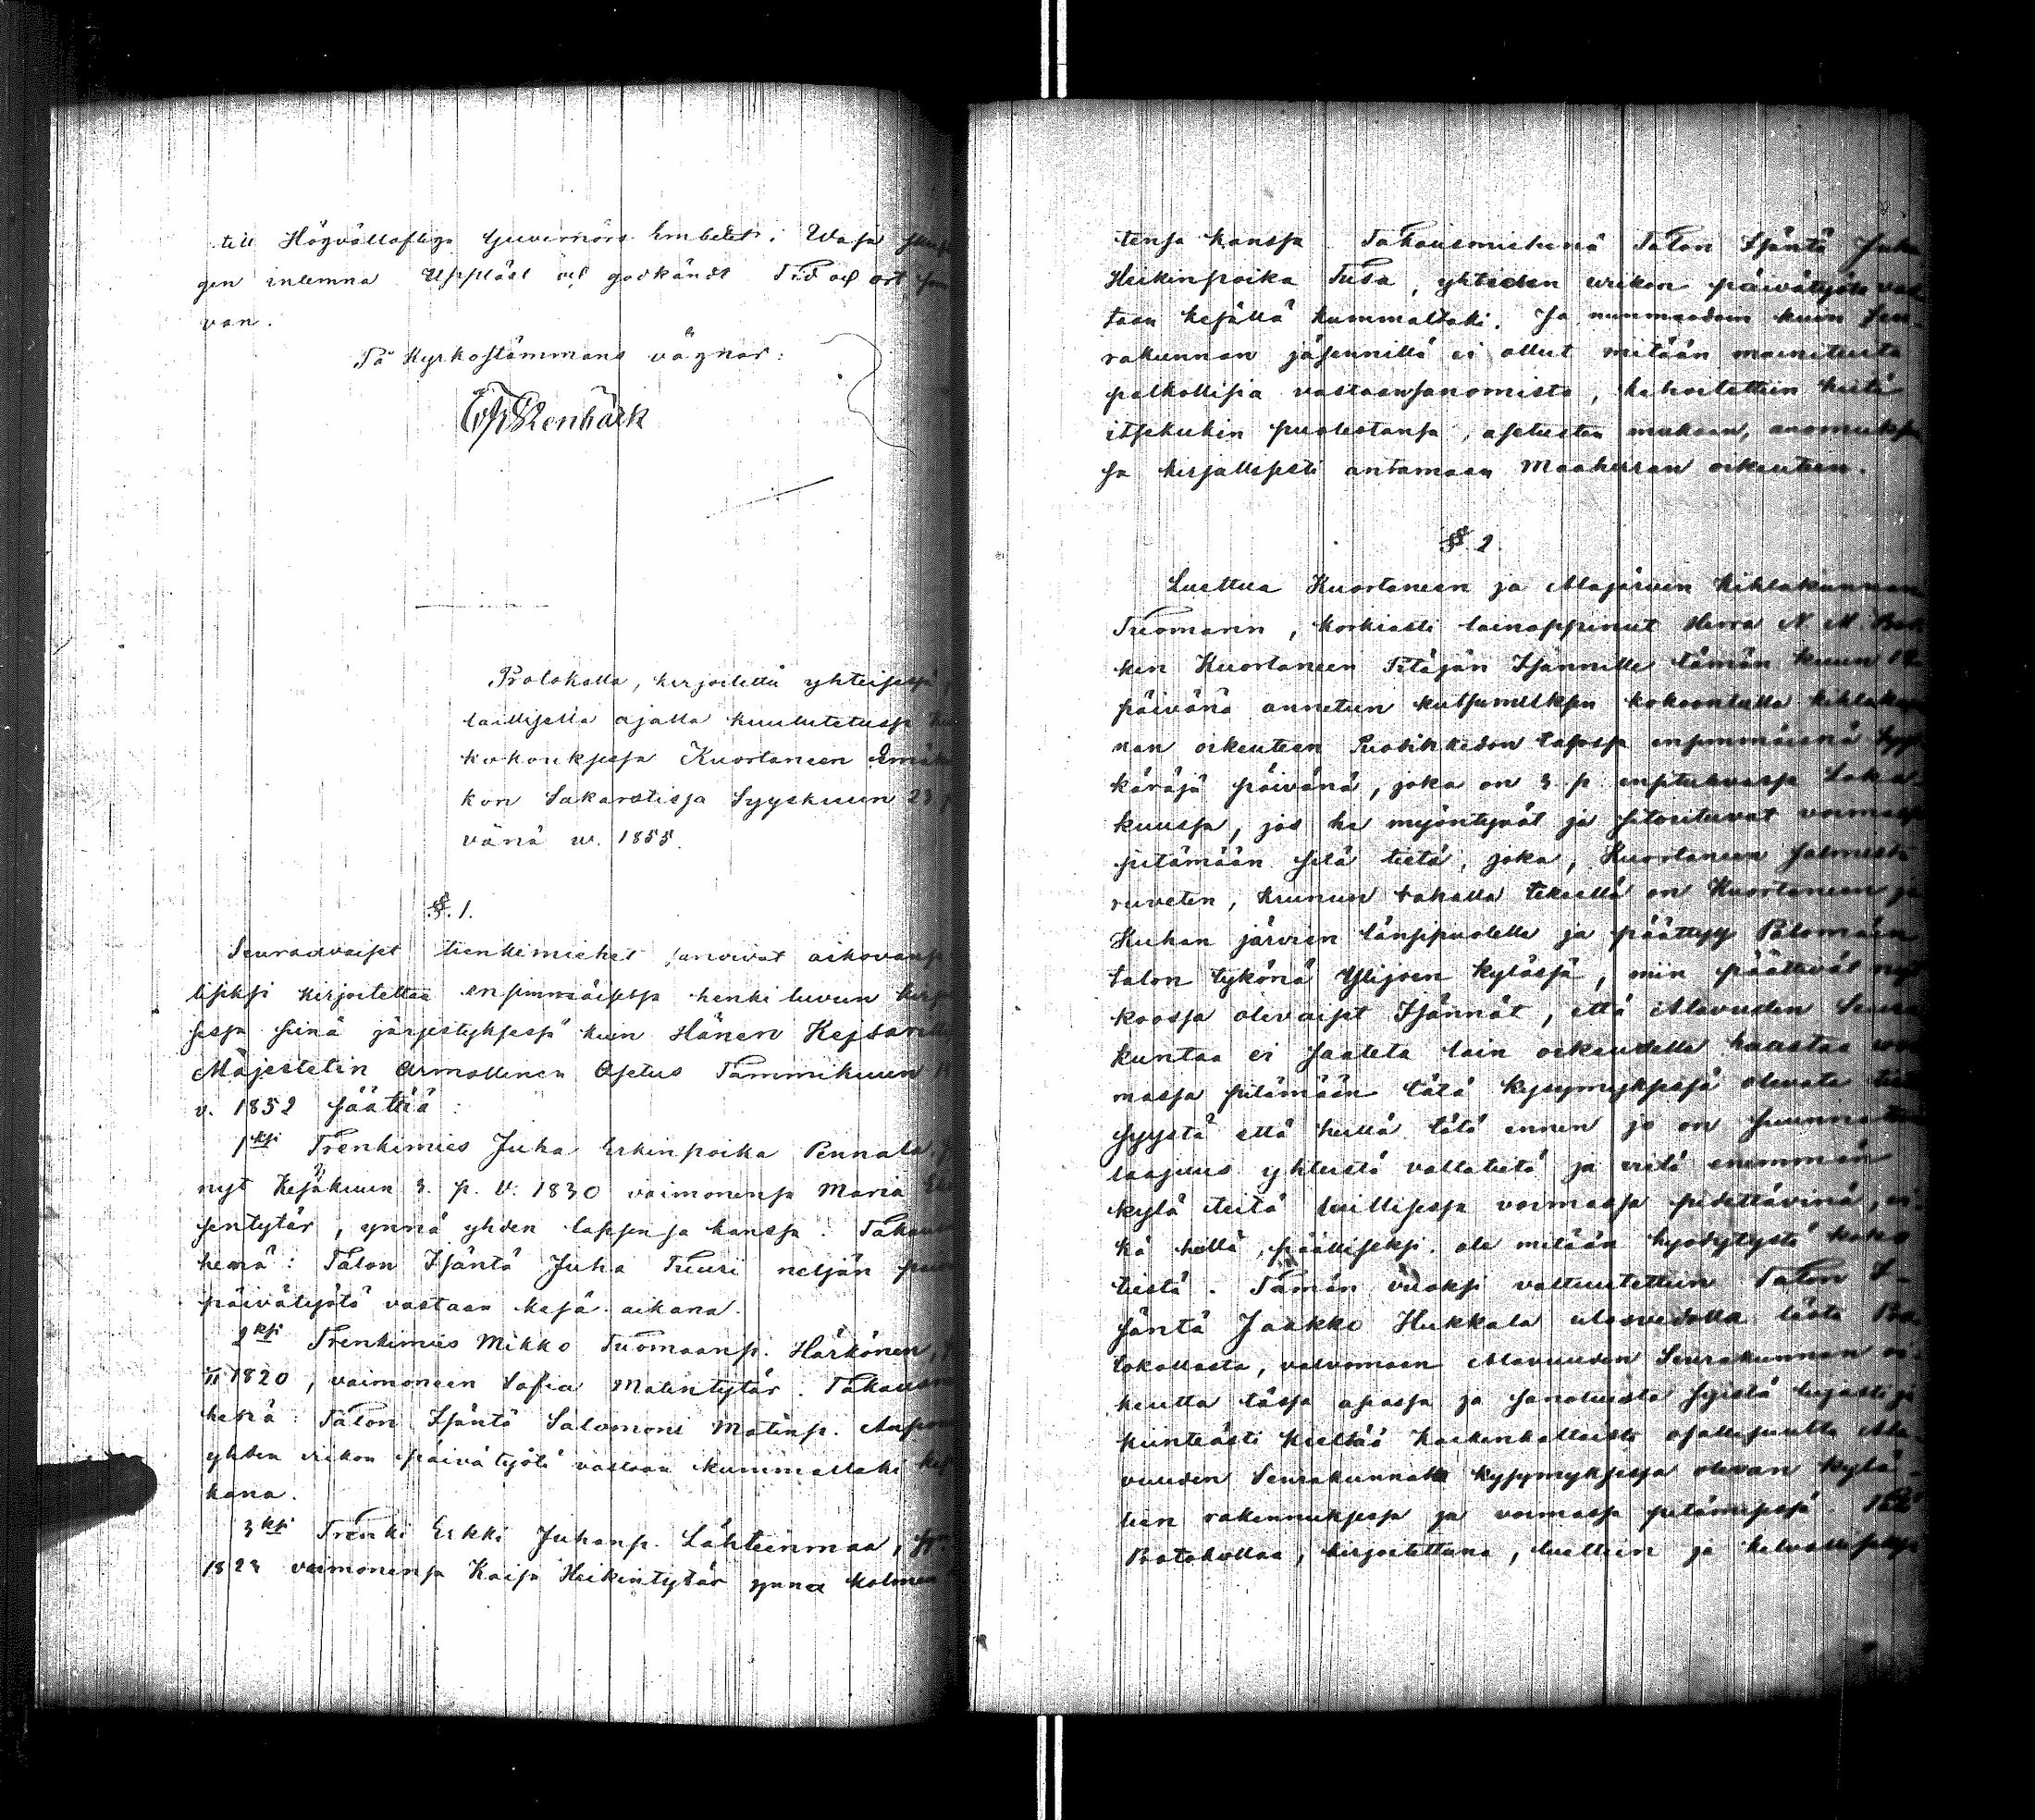 till Högvällofliga Guvernörs Embetet i Wasa
gen inlemna Uppläst och godkändt Tid och ort, som
van.
På Kyrkostämmans vägnar:
Stenbäck
Protokolla, kirjoitettu yhteisessä,
laillisella ajalla kuulutetussa
kokouksessa Kuortaneen Emä
kon Sakarstissa Syyskuun 23
vänä w. 1855.
§. 1.
Seuraavaiset trenkimiehet sanoivat aikovansa
kirjoitettaa ensimmäisessä henki luvun kirjoi
sessa siinä järjestyksessä kuin Hänen Kejsarilli
Majestetin Armollinen Asetus Tammikuun
v. 1852 säättää:
1ksi Trenkimies Juha Erkinpoika Pennala
nyt Kesäkuun 3. p. v. 1830 vaimonensa Maria
sentytär, ynnä yhden lapsensa kanssa. Takaus
henä: Talon Isäntä Juha Tuuri neljän
päivätyötä vastaan kesä aikana.
2ksi Trenkimies Mikko Tuomaanp. Härkönen,
1820, vaimoneen Sofia Matintytär. Takausm
henä: Talon Isäntä Salomoni Matinp.
yhden viikon päivätyötä vastaan kummallaki kes
kana.
3ksi Trenki Erkki Juhanp. Lähteenmaa, syn.
1823 vaimonensa Kaisa Heikintytär ynnä kolmen
tensa kanssa. Takausmiehenä Talon Isäntä Juha
Heikinpoika Tusa, yhteiden viikon päivätyötä vas
taan kesällä kummaltaki. Ja nunmuodoin kuin Seu-
rakunnan jäsennillä ei ollut mitään mainituista
palkollisia vastaansanomista, kehoitettiin heitä
itsekukin puolestansa, asetusten mukaan, anomuksen
sa kirjallisesti antamaan Maaherran oikeuteen.
§. 2.
Luettua Kuortaneen ja Alajärven Kihlakunnan
Tuomarin, korkiasti lainoppinut Herra N. M.
ken Kuortaneen Pitäjän Isännille tämän kuun
päivänä annetun kutsumuksen kokoontulla kihlakun
nan oikeuteen talossa ensimmäisenä Syys
käräjä päivänä, joka on 3 p. ensitulevassa Loka-
kuussa, jos he myöntyvät ja sitoutuvat voimassa
pitämään sitä tietä, joka, Kuortaneen Salmesta
ruveten, kruunun rahalla tekeellä on Kuortaneen ja
Kuhan järvien länsipuolella ja päättyy
talon tykönä Ylijoen kylässä, niin päättivät nyt
koossa olevaiset Isännät, että Alavuden Seura
kuntaa ei saateta lain oikeudella haastaa voi
massa pitämään tätä kysymyksessä olevata tietä
syystä että heillä tätä ennen jo on suunnattoman
laajuus yhteistä valtatietä ja vielä enemmän
kylä teitä laillisessa voimassa pidettävinä, ei-
kä heillä, päälliseksi, ole mitään hyödytystä koko
tiestä. Tämän vuoksi valtuutettiin Talon I-
säntä Jaakko Hukkala ulosvedolla tästä Pro-
tokollasta, valvomaan Alavuuden Seurakunnan oi-
keutta tässä asiassa ja sanotuista syistä lujasti ja
kiinteästi kieltää kaikenkaltaista osallisuutta Ala-
vuuden Seurakunnalta kysymyksessä olevan kylä-
tien rakennuksessa ja voimassa pitämisessä.
Protokollaa, kirjoitettuna, luettiin ja kelvolliseksi